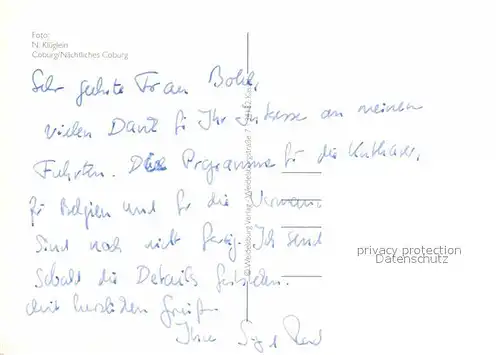 Foto:
N. Klüglein
Coburg/Nächtliches Coburg
Sehr geehrte Frau
vielen Dank für Ihr Interesse an meinen
Fahrten. Die Programme für die Katharer,
für Belgien und für die
sind noch nicht fertig. Ich send
sobald die Details feststehen.
Mit herzlichen Grüßen
Ihre
© Weidelsburg Verlag
privacy protection
Datenschutz